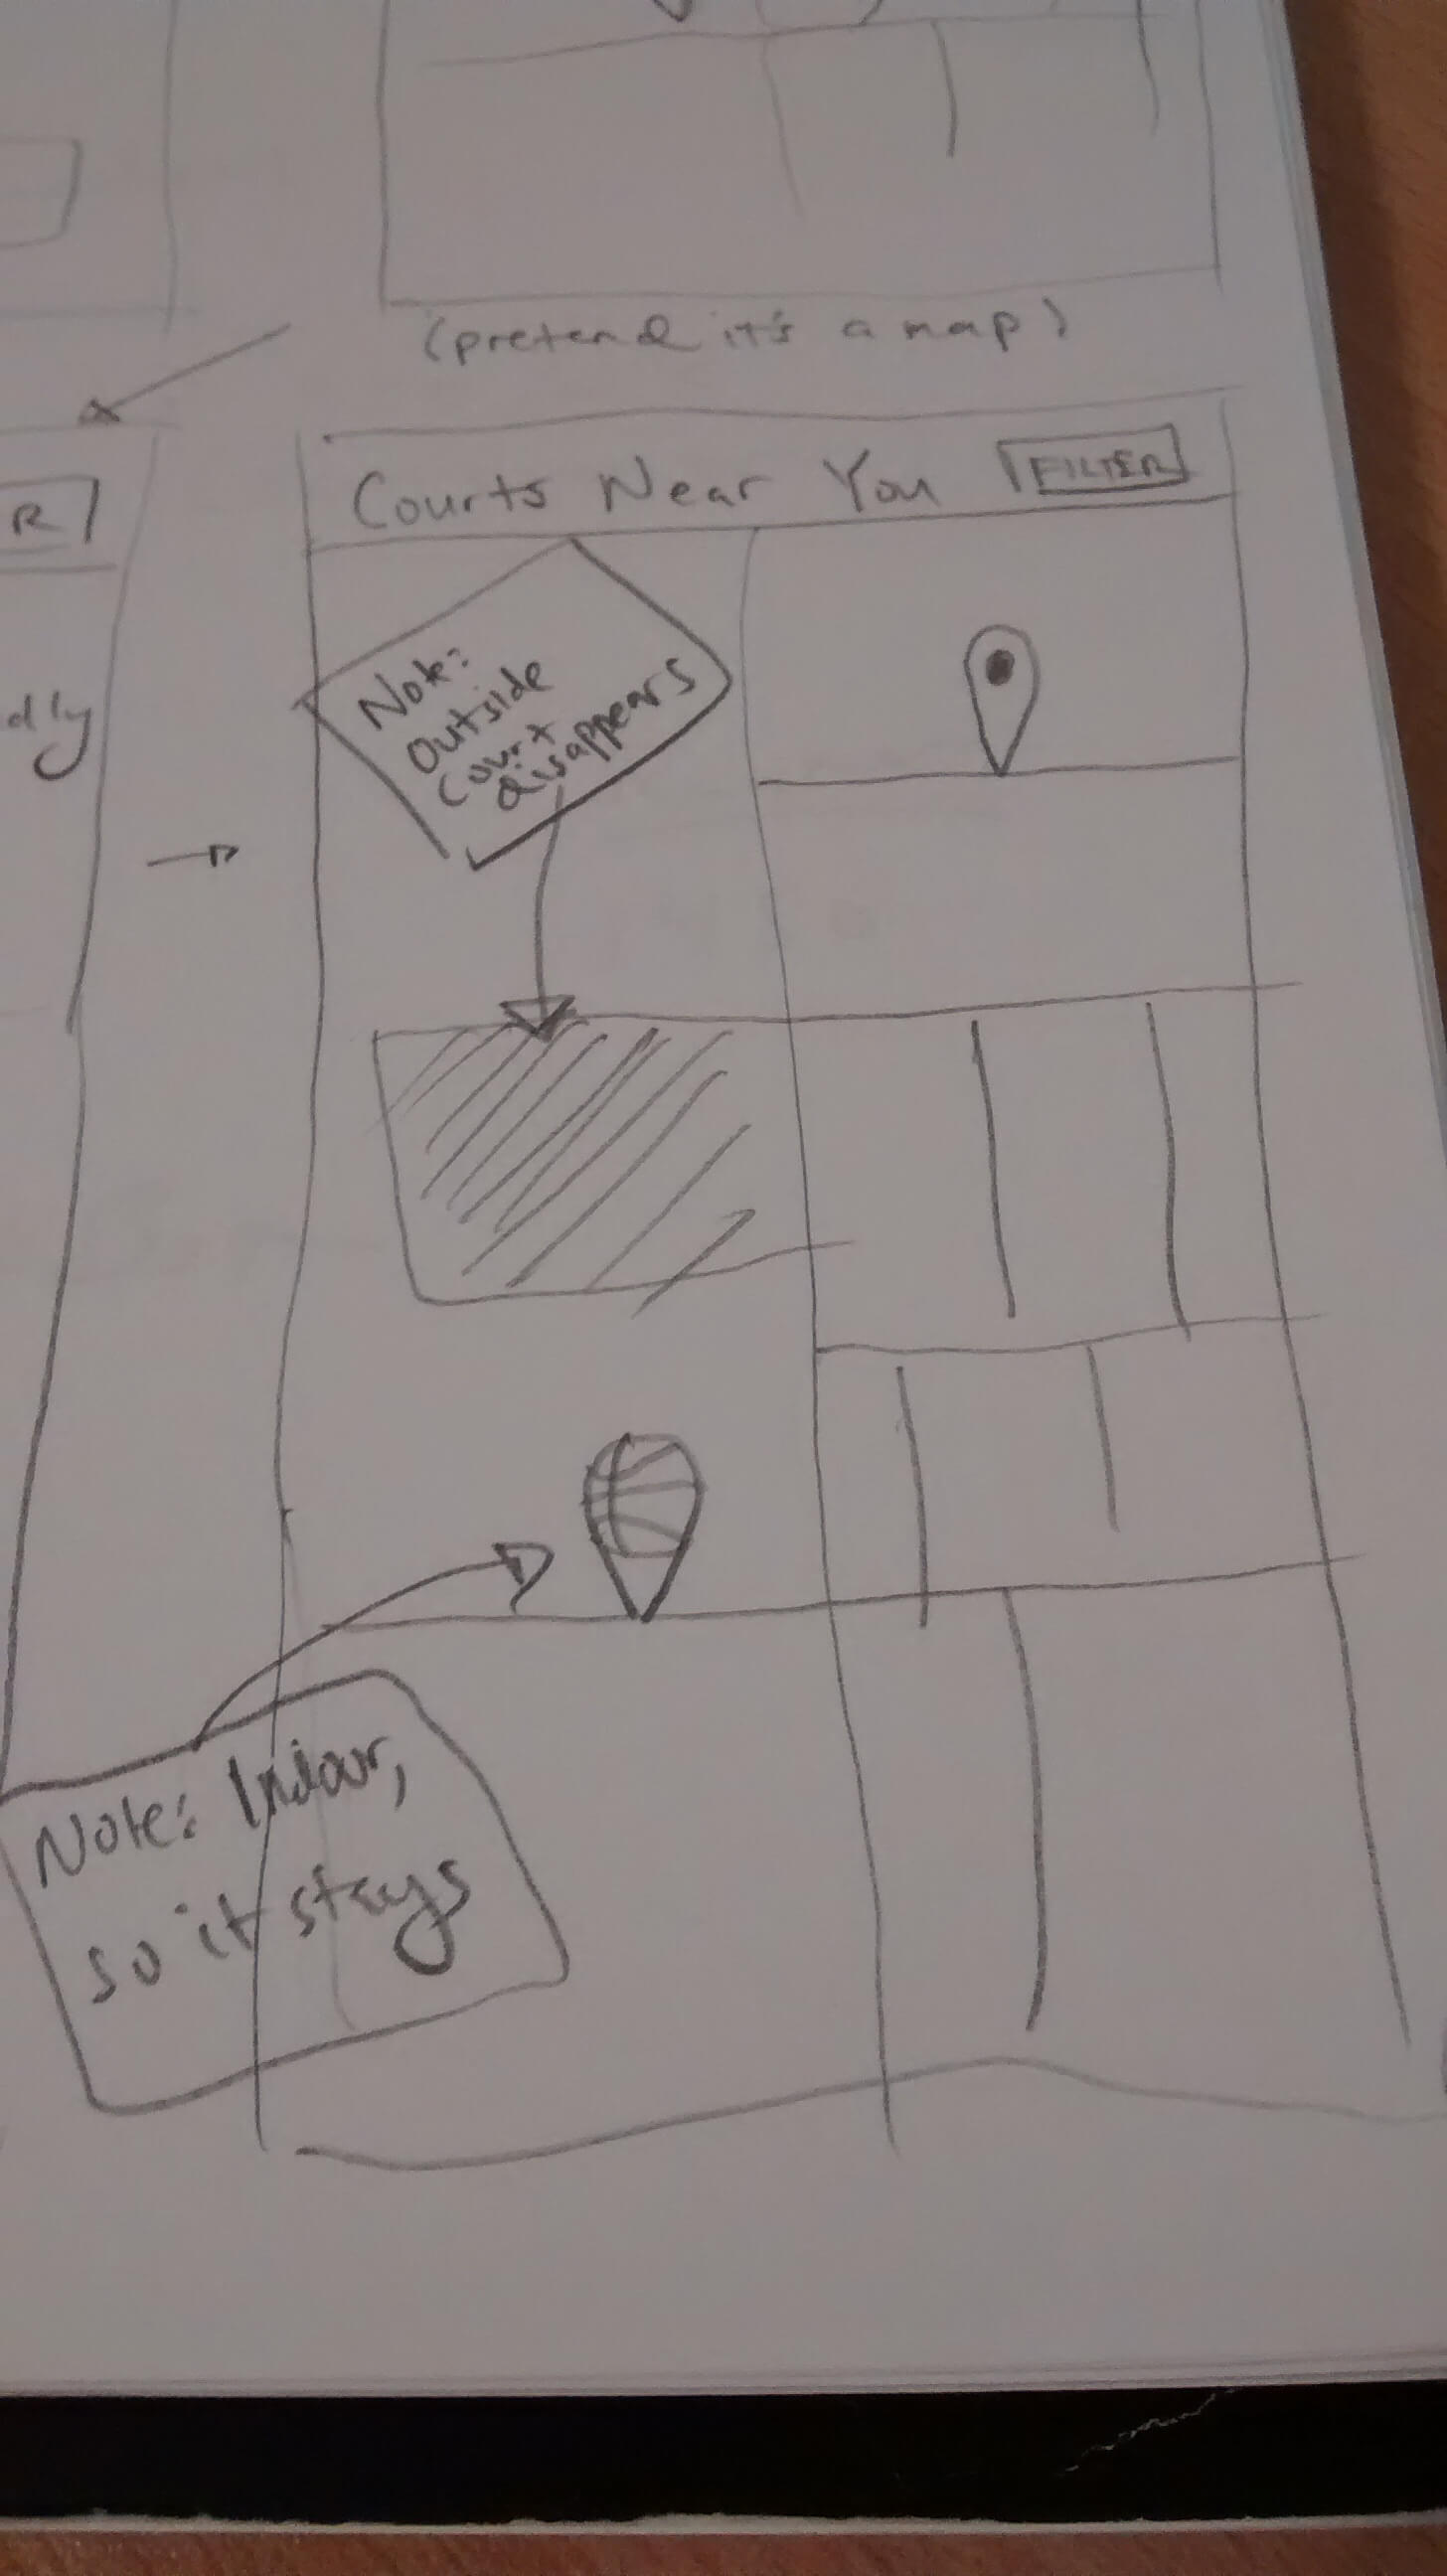 (pretend it's a map)
Courts Near You FILTER
R
Note:
Outside
Court
disappears
dly
Note: Indoor,
so it stays